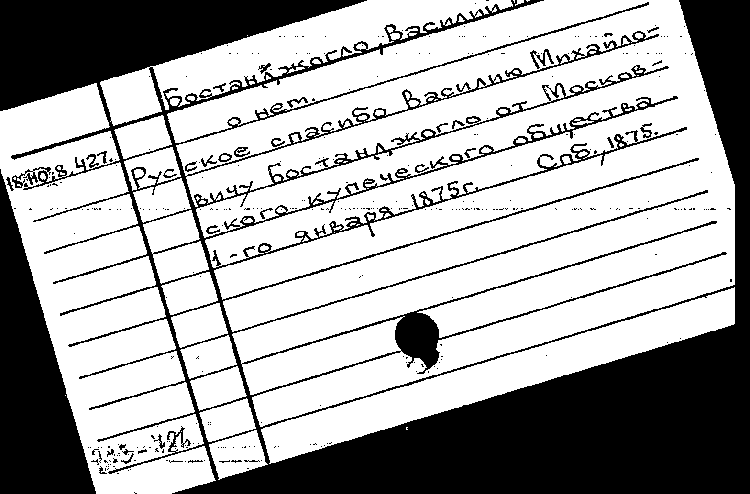 Бостанджогло, Василий
о нем.
18.110.8.427.
Русское спасибо Василию Михайло-
вичу Бостанджогло от Москов-
ского купеческого общества
1-го января 1875г. Спб., 1875.